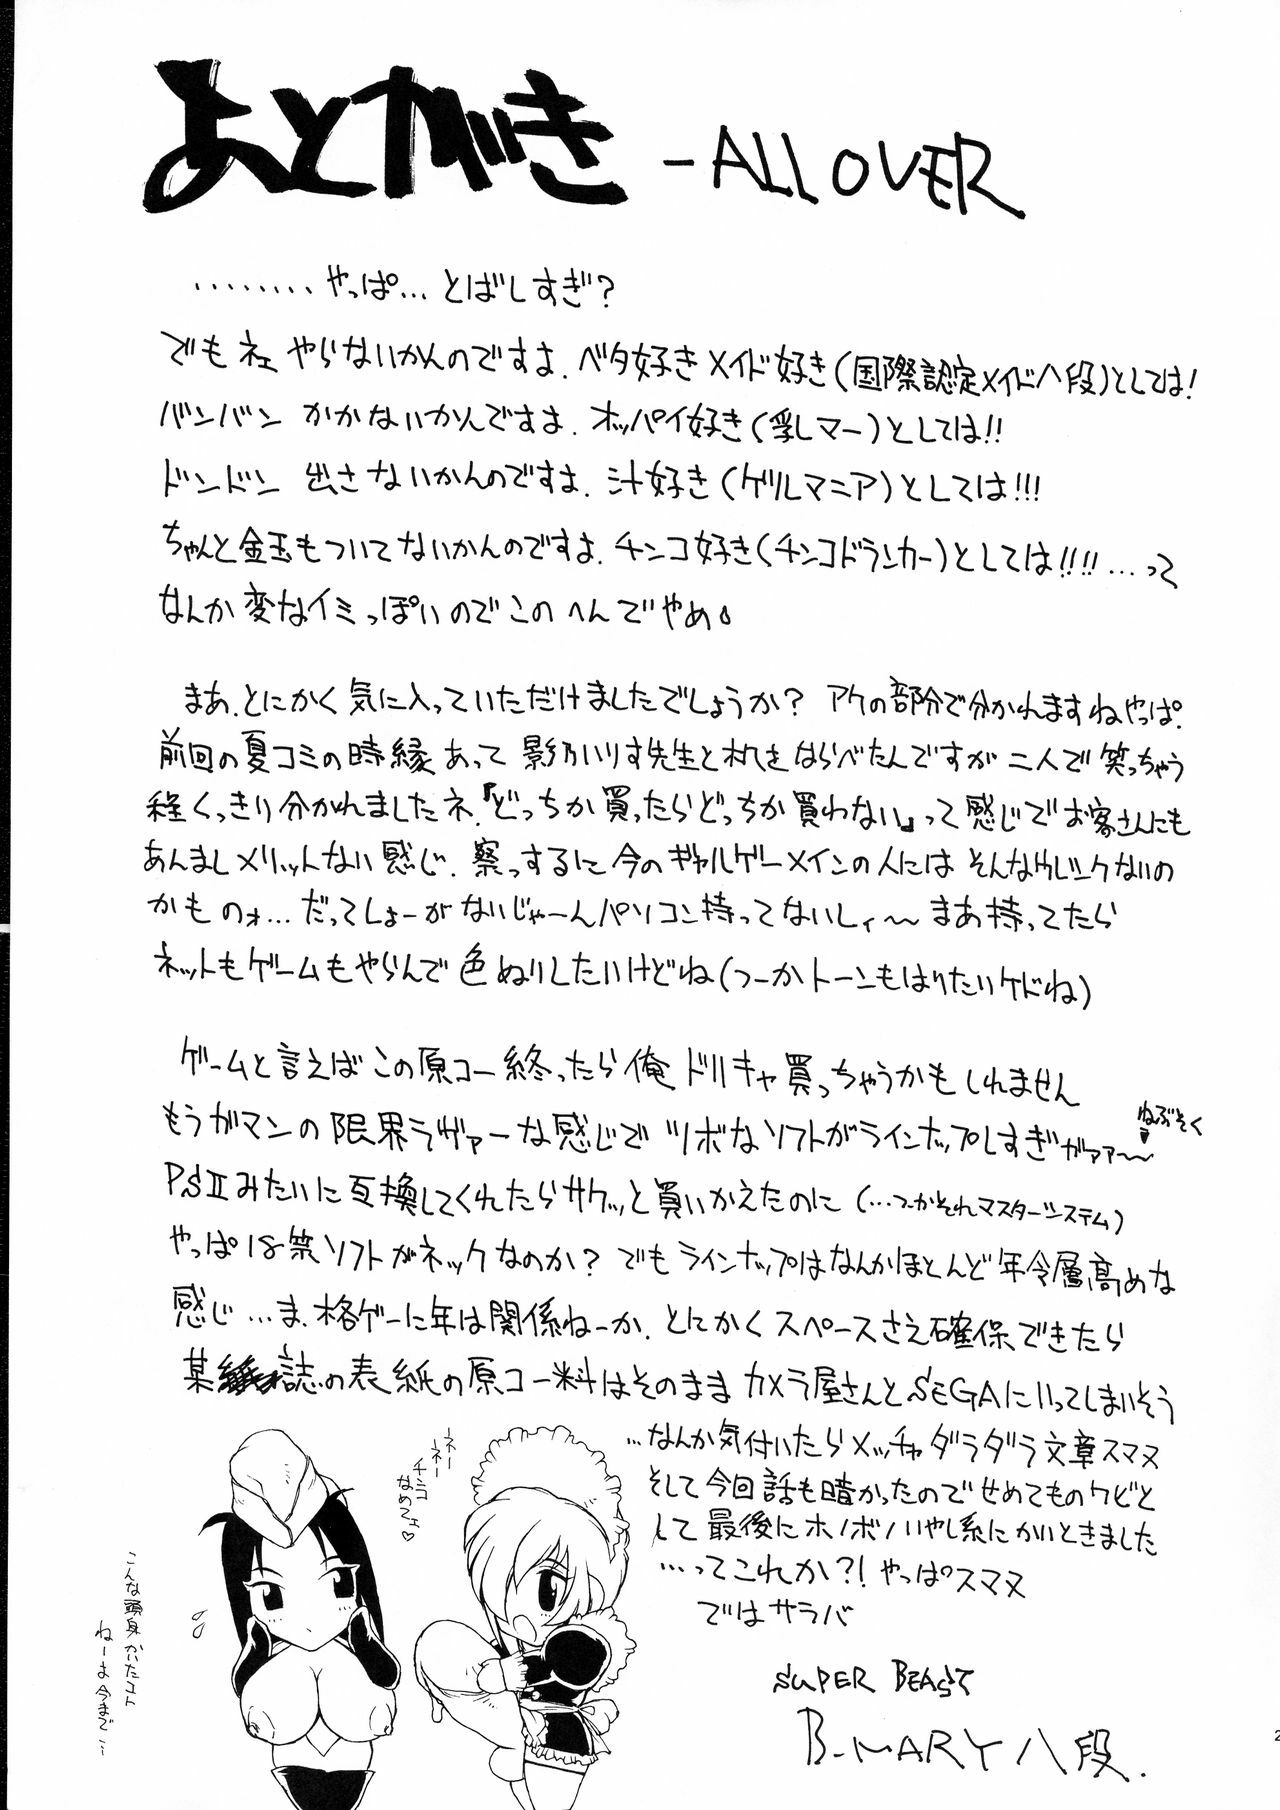 あとがき -ALL OVER
........やっぱ…とばしすぎ?
でもネェ やらないかんのですよ.ベタ好きメイド好き(国際認定メイド八段)としては!
バンバン かかないかんですよ.オッパイ好き(乳レマー)としては!!
ドンドン 出さないかんのですよ.汁好き(ゲルマニア)としては!!!
ちゃんと金玉もついてないかんのですよ.チンコ好き(チンコドランカー)としては!!!!…って
なんか変なイミっぽいのでこのへんでやめ。
まあ.とにかく気に入っていただけましたでしょうか? アケの部分で分かれますねやっぱ.
前回の夏コミの時縁あって 影乃いりす先生と机をならべたんですが二人で笑っちゃう
程くっきり分かれましたネ.『どっちか買ったらどっちか買わない』って感じでお客さんにも
あんましメリットない感じ.察っするに今のギャルゲーメインの人には そんなウレシクないの
かものォ…だってしょーがないじゃーんパソコン持ってないしィ〜まあ持ってたら
ネットもゲームもやらんで色ぬりしたいけどね(つーかトーンもはりたいケドね)
ゲームと言えばこの原コー終ったら俺 ドリキャ買っちゃうかもしれません
もうガマンの限界ラヴァーな感じで ツボなソフトがラインナップしすぎがァァ〜〜
ねぶそく
PSⅡみたいに互換してくれたらサクッと買いかえたのに (…つーかそれマスターシステム)
やっぱ18禁ソフトがネックなのか? でもラインナップはなんかほとんど年令層高めな
感じ…ま.格ゲーに年は関係ねーか.とにかくスペースさえ確保できたら
某誌の表紙の原コー料はそのままカメラ屋さんとSEGAにいってしまいそう
…なんか気付いたらメッチャダラダラ文章スマヌ
そして今回話も暗かったのでせめてものクビと
して最後にホノボノいやし系にかいときました
…ってこれか?! やっぱスマヌ
ではサラバ
SUPER BEAST
B-MARY八段.
ネーネー
チンコ
なめてよ♡
こんな頭身かいたコト
ねーよ今まで…
2